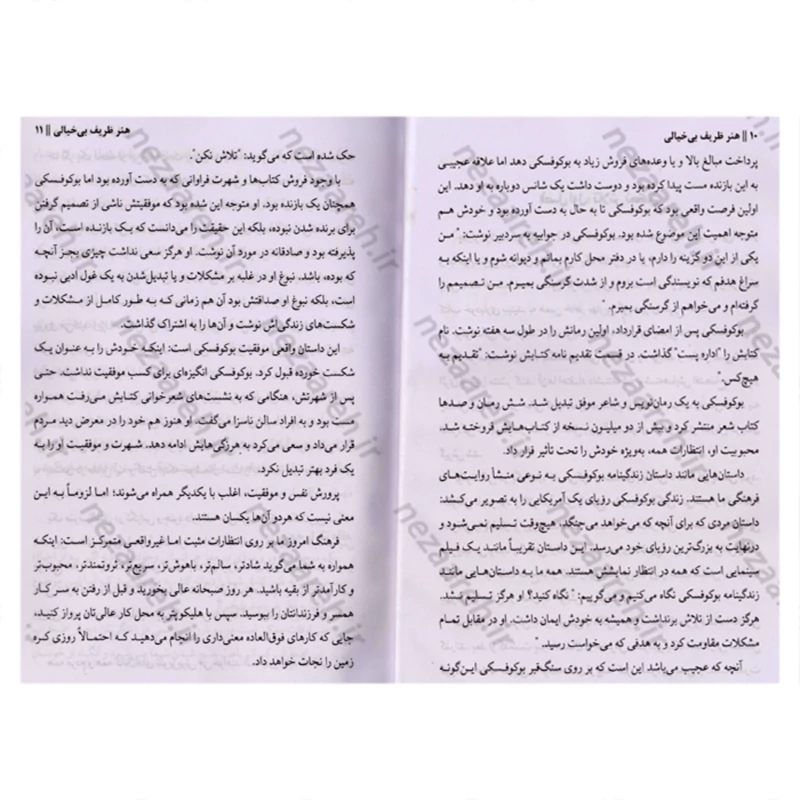 ۱۰ || هنر ظریف بی‌خیالی
پرداخت مبالغ بالا و یا وعده‌های فروش زیاد به بوکوفسکی دهد اما علاقه عجیبی
به این بازنده مست پیدا کرده بود و دوست داشت یک شانس دوباره به او دهد. این
اولین فرصت واقعی بود که بوکوفسکی تا به حال به دست آورده بود و خودش هم
متوجه اهمیت این موضوع شده بود. بوکوفسکی در جوابیه به سردبیر نوشت: "من
یکی از این دو گزینه را دارم، یا در دفتر محل کارم بمانم و دیوانه شوم و یا اینکه به
سراغ هدفم که نویسندگی است بروم و از شدت گرسنگی بمیرم. من تصمیمم را
گرفته‌ام و می‌خواهم از گرسنگی بمیرم."
بوکوفسکی پس از امضای قرارداد، اولین رمانش را در طول سه هفته نوشت. نام
کتابش را "اداره پست" گذاشت. در قسمت تقدیم نامه کتابش نوشت: "تقدیم به
هیچ‌کس."
بوکوفسکی به یک رمان‌نویس و شاعر موفق تبدیل شد. شش رمان و صدها
کتاب شعر منتشر کرد و بیش از دو میلیون نسخه از کتاب‌هایش فروخته شد.
محبوبیت او، انتظارات همه، به‌ویژه خودش را تحت تأثیر قرار داد.
داستان‌هایی مانند داستان زندگینامه بوکوفسکی به نوعی منشأ روایت‌های
فرهنگی ما هستند. زندگی بوکوفسکی رؤیای یک آمریکایی را به تصویر می‌کشد:
داستان مردی که برای آنچه که می‌خواهد می‌جنگد، هیچ‌وقت تسلیم نمی‌شود و
درنهایت به بزرگ‌ترین رؤیای خود می‌رسد. این داستان تقریباً مانند یک فیلم
سینمایی است که همه در انتظار نمایشش هستند. همه ما به داستان‌هایی مانند
زندگینامه بوکوفسکی نگاه می‌کنیم و می‌گوییم: "نگاه کنید؟ او هرگز تسلیم نشد.
هرگز دست از تلاش برنداشت و همیشه به خودش ایمان داشت. او در مقابل تمام
مشکلات مقاومت کرد و به هدفی که می‌خواست رسید."
آنچه که عجیب می‌باشد این است که بر روی سنگ‌قبر بوکوفسکی این‌گونه
هنر ظریف بی‌خیالی || ۱۱
حک شده است که می‌گوید: "تلاش نکن".
با وجود فروش کتاب‌ها و شهرت فراوانی که به دست آورده بود اما بوکوفسکی
همچنان یک بازنده بود. او متوجه این شده بود که موفقیتش ناشی از تصمیم گرفتن
برای برنده شدن نبوده، بلکه این حقیقت را می‌دانست که یک بازنده است، آن را
پذیرفته بود و صادقانه در مورد آن نوشت. او هرگز سعی نداشت چیزی بجز آنچه
که بوده، باشد. نبوغ او در غلبه بر مشکلات و یا تبدیل‌شدن به یک غول ادبی نبوده
است، بلکه نبوغ او صداقتش بود آن هم زمانی که به طور کامل از مشکلات و
شکست‌های زندگی‌اش نوشت و آن‌ها را به اشتراک گذاشت.
این داستان واقعی موفقیت بوکوفسکی است: اینکه خودش را به عنوان یک
شکست خورده قبول کرد. بوکوفسکی انگیزه‌ای برای کسب موفقیت نداشت. حتی
پس از شهرتش، هنگامی که به نشست‌های شعرخوانی کتابش می‌رفت همواره
مست بود و به افراد سالن ناسزا می‌گفت. او هنوز هم خود را در معرض دید مردم
قرار می‌داد و سعی می‌کرد به هرزگی‌هایش ادامه دهد. شهرت و موفقیت او را به
یک فرد بهتر تبدیل نکرد.
پرورش نفس و موفقیت، اغلب با یکدیگر همراه می‌شوند؛ اما لزوماً به این
معنی نیست که هردو آن‌ها یکسان هستند.
فرهنگ امروز ما بر روی انتظارات مثبت اما غیرواقعی متمرکز است: اینکه
همواره به شما می‌گوید شادتر، سالم‌تر، باهوش‌تر، سریع‌تر، ثروتمندتر، محبوب‌تر
و کارآمدتر از بقیه باشید. هر روز صبحانه عالی بخورید و قبل از رفتن به سر کار
همسر و فرزندانتان را ببوسید. سپس با هلیکوپتر به محل کار عالی‌تان پرواز کنید،
جایی که کارهای فوق‌العاده معنی‌داری را انجام می‌دهید که احتمالاً روزی کره
زمین را نجات خواهد داد.
nezaareh.ir